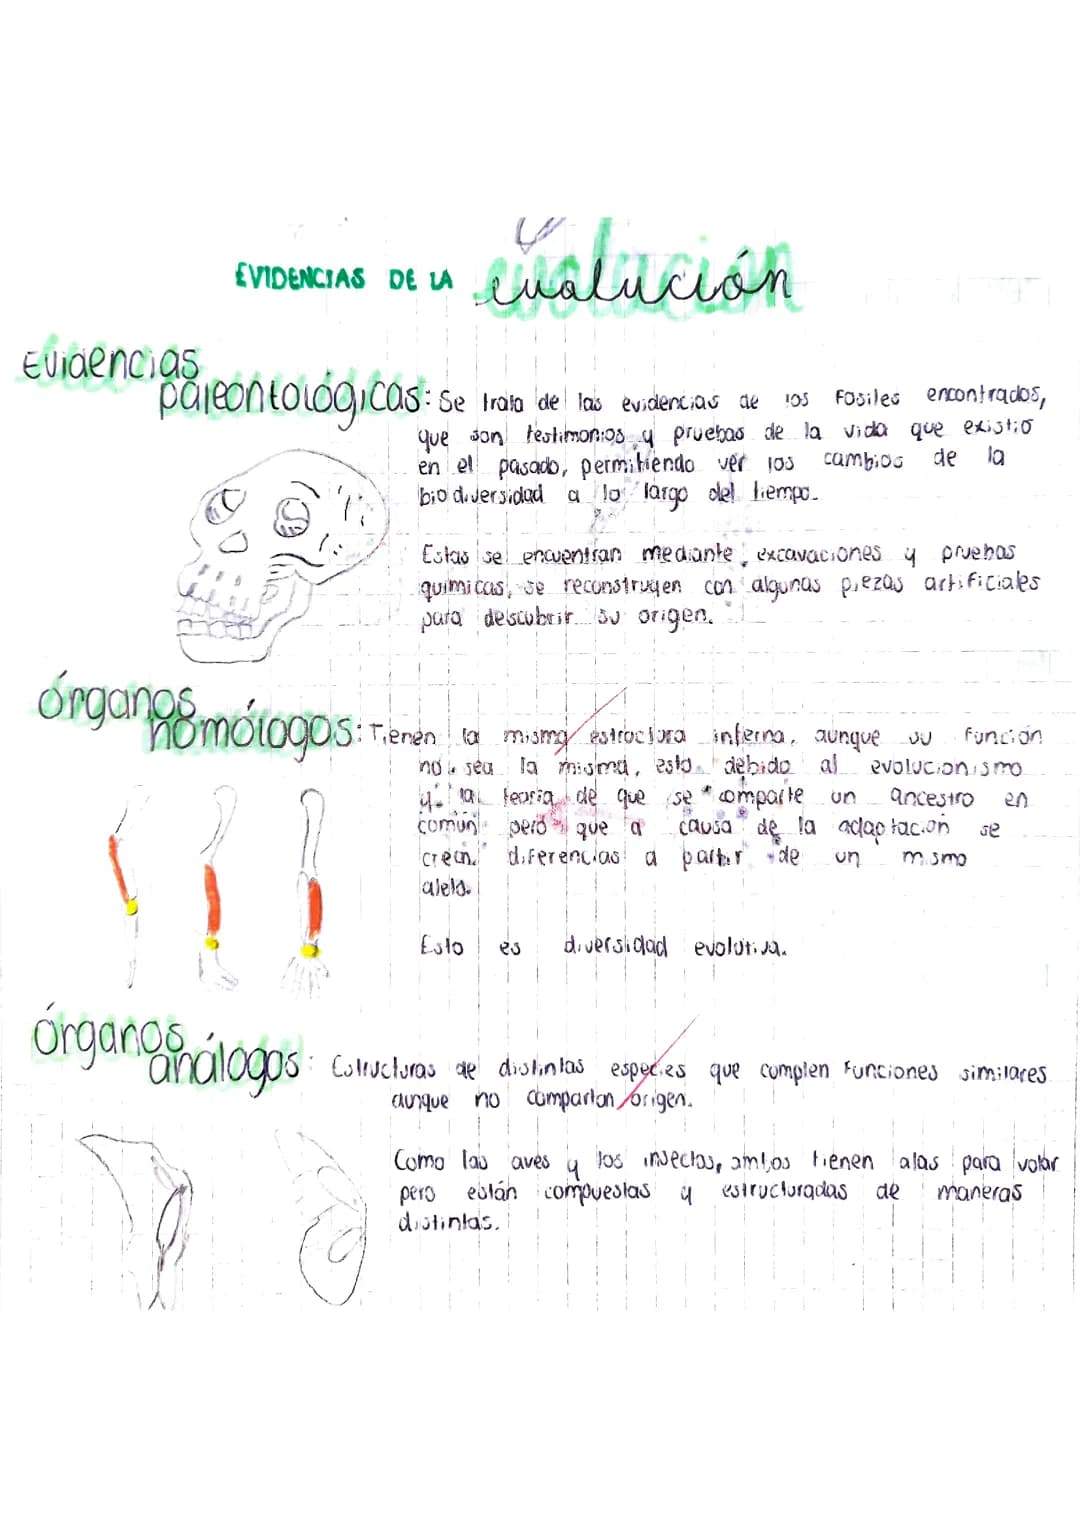 EVIDENCIAS DE LA evolución
Evidencias
paleontológicas: Se trata de las evidencias de los Fósiles encontrados,
que son testimonios y pruebas de la vida que existió
en el pasado, permitiendo ver los cambios de la
biodiversidad a lo largo del tiempo.
Estas se encuentran mediante excavaciones y pruebas
químicas, se reconstruyen con algunas piezas artificiales
para descubrir su origen.
órganos
homólogos: Tienen la misma estructura interna, aunque su función
no sea la misma, esto debido al evolucionismo
y la teoría de que se comparte un ancestro en
común pero que a causa de la adaptación se
crean diferencias a partir de un mismo
alelo.
Esto es diversidad evolutiva.
Órganos
análogos: Estructuras de distintas especies que cumplen funciones similares
aunque no compartan origen.
Como las aves y los insectos, ambos tienen alas para volar
pero están compuestas y estructuradas de maneras
distintas.